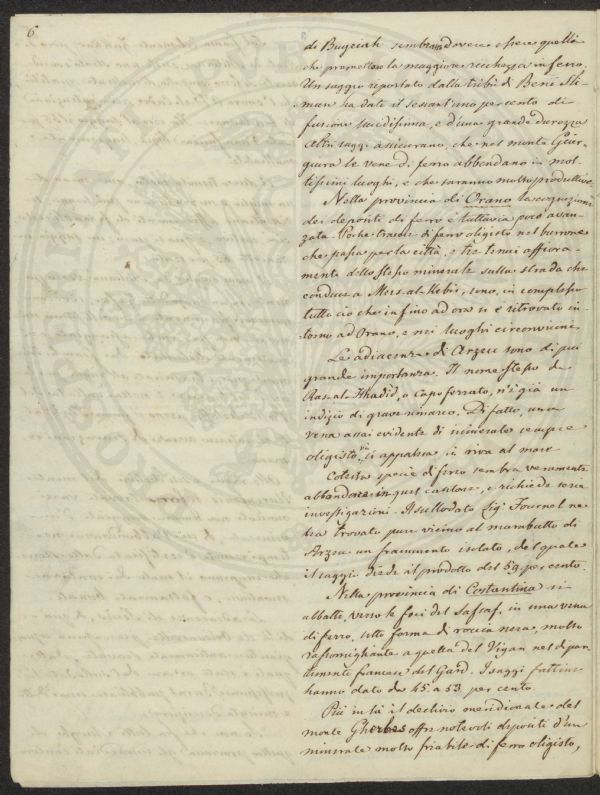 6
di Bugeiah sembra dovere essere quella
che promettere la maggiore ricchezza in ferro.
Un saggio reportato dalla tribù di Beni-Sli-
man ha dato il sessant'uno per cento di
fusione lucidissima, e d'una grande durezza
Altri saggi assicurano, che nel monte Giur-
giura le vene di ferro abbondano in mol-
tissimi luoghi, e che saranno molto produttive
Nella provincia di Orano la cognizione
dei depositi di ferro è tuttavia poco avan-
zata. Poche traccie di ferro oligisto nel burrone
che passa per la città, e tre tenui affiora-
menti dello stesso minerale sulla strada che
conduce a Mers-al-Kebir, sono, in complesso
tutto ciò che infino ad ora si è ritrovato in-
torno ad Orano, e nei luoghi circonvicini.
Le adiacenze di Arzeu sono di più
grande importanza. Il nome stesso di
Ras-al-Hhadid, o Capo ferrato, n'è già un
indizio di grave rimarco. Di fatto, una
vena assai evidente di minerale sempre
oligisto, vi si appalesa in riva al mare
Cotesta specie di ferro sembra veramente
abbondare in quel cantone, e richiede serie
investigazioni. Il sullodato Sig.r Fournel ne
ha trovato pure vicino al marabutto di
Arzeu un frammento isolato, del quale
il saggio diede il prodotto del 59. per cento.
Nella provincia di Costantina si
abbatte, verso le foci del Safsaf, in una vena
di ferro, sotto forma di roccia nera, molto
rassomigliante a quella del Vigan nel dipar-
timento francese del Gard. I saggi fattine
hanno dato da 45 a 53 per cento.
Più in là il declivio meridionale del
monte Gherbes offre notevoli depositi d'un
minerale molto friabile di ferro oligisto,